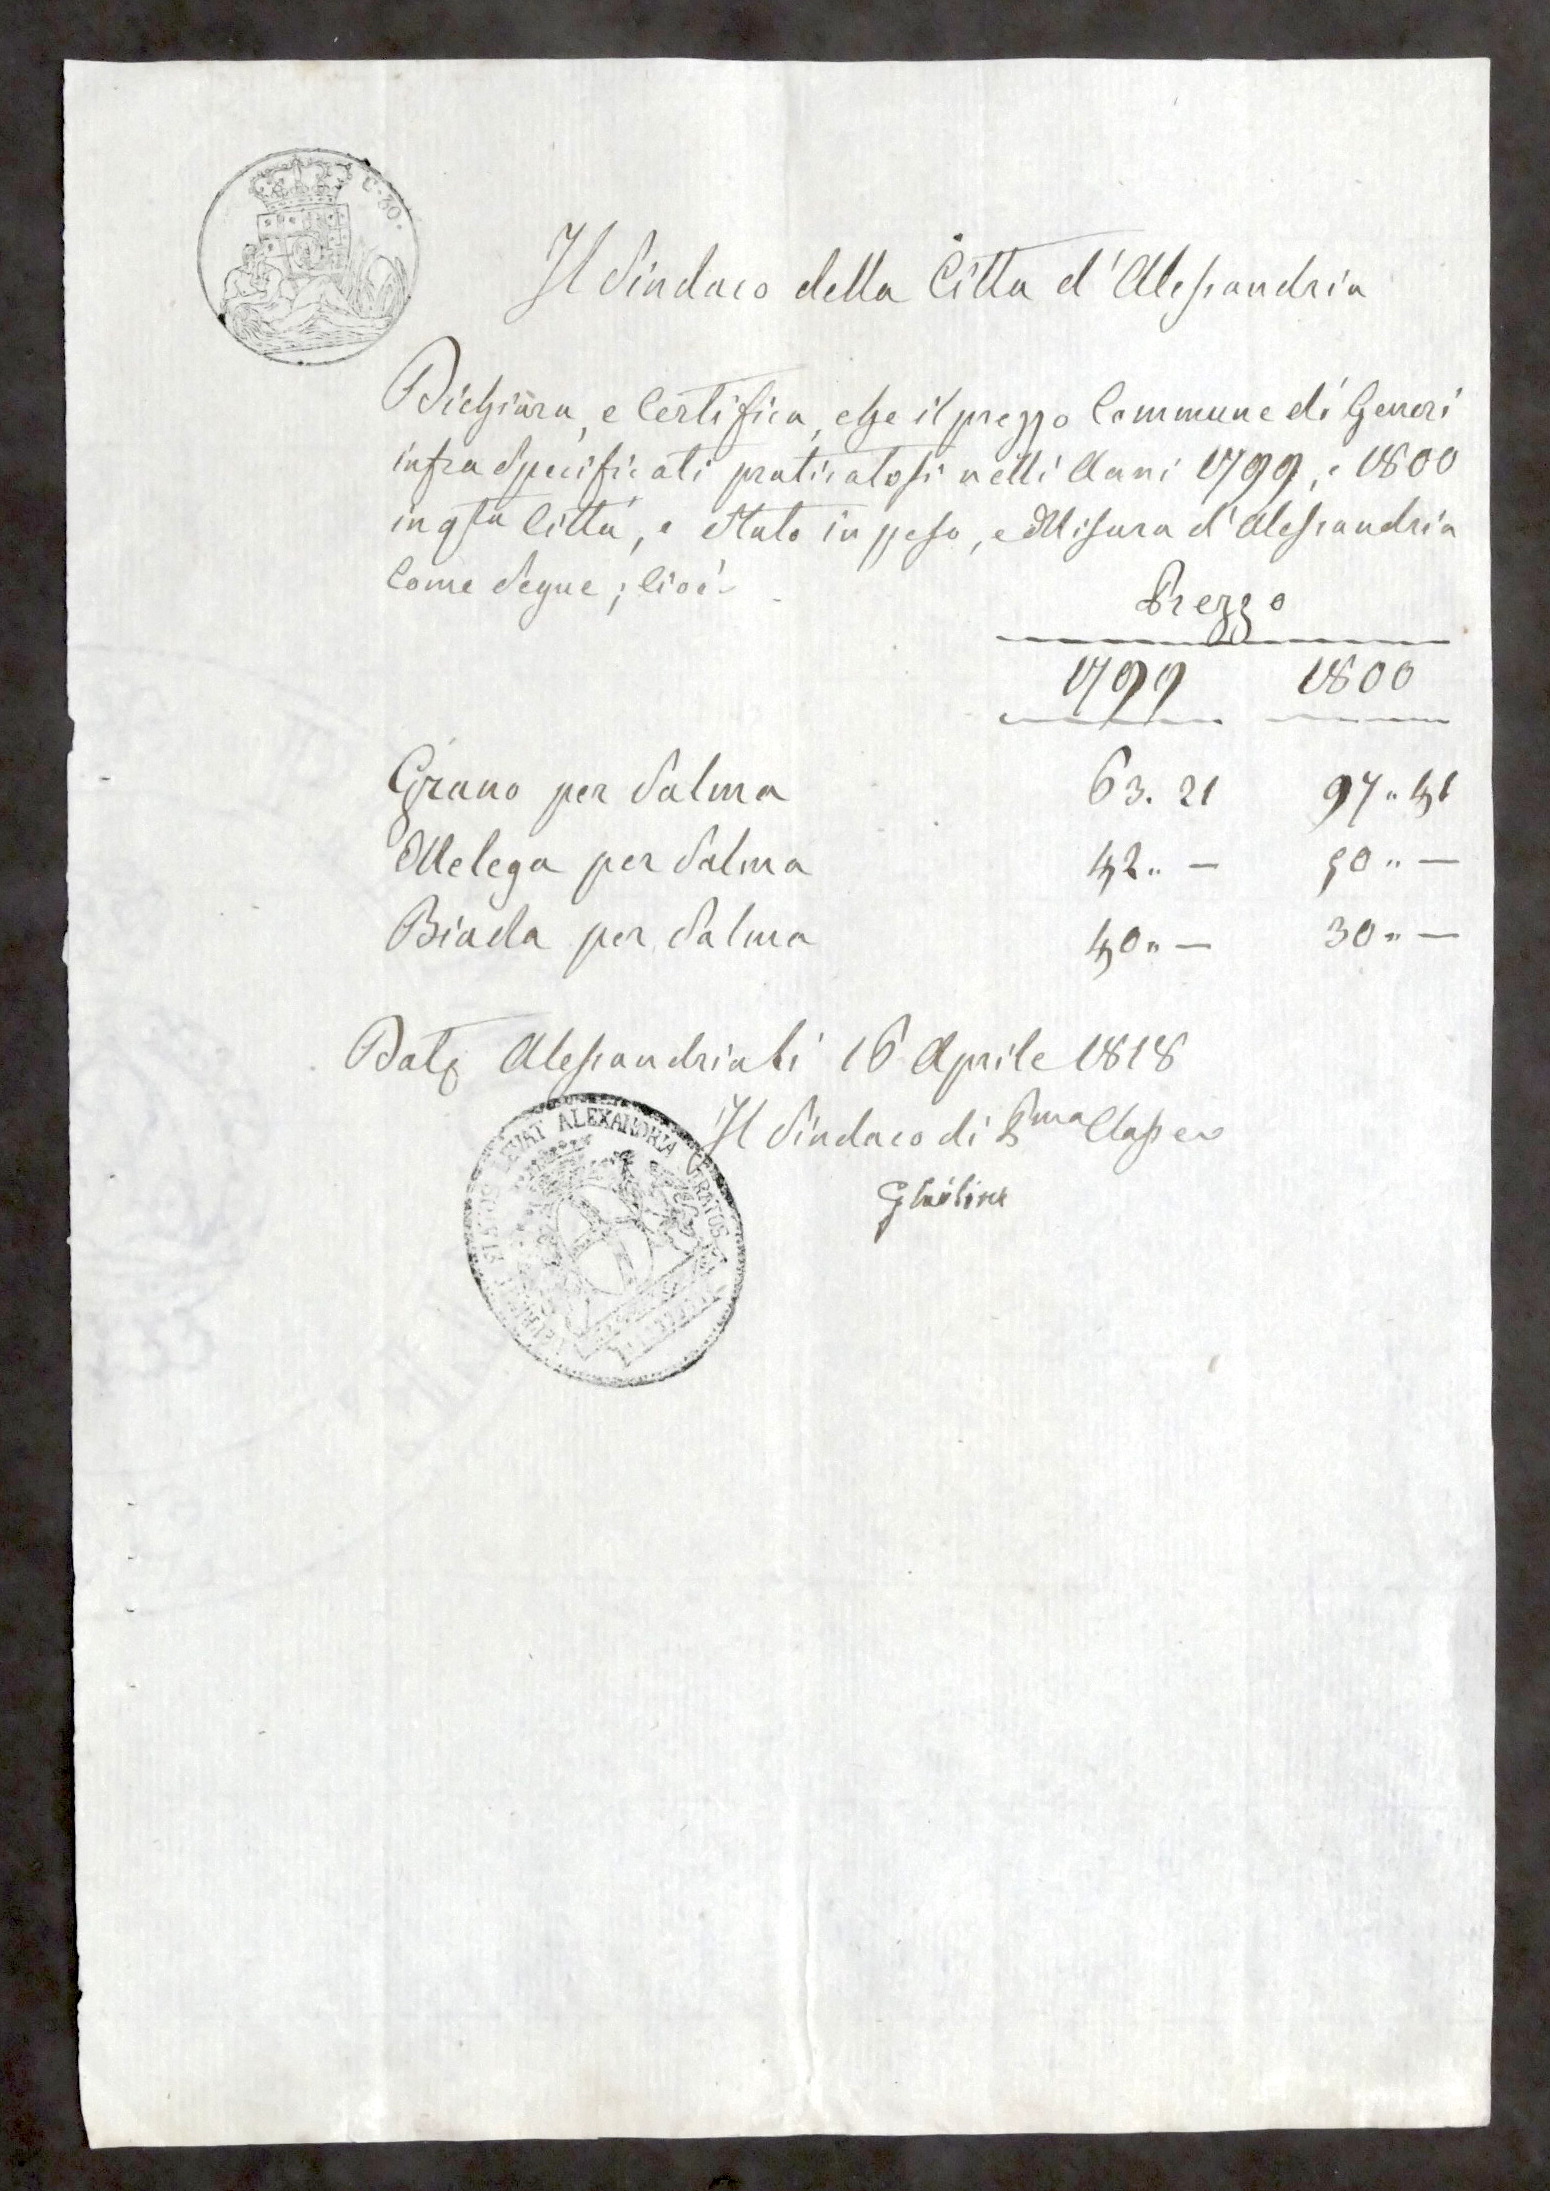 C. 30.
Il Sindaco della Città d'Alessandria
Dichiara, e Certifica, che il prezzo Commune di Generi
infra Specificati praticatosi nelli Anni 1799, e 1800
in qsta Città, e Stato in peso, e Misura d'Alessandria
Come Segue; Cioè
Prezzo
1799 1800
Grano per Salma 63. 21 97 .. 41
Melega per Salma 42 .. — 50 .. —
Biada per Salma 40 .. — 30 .. —
Dat. Alessandria li 16 Aprile 1818
Il Sindaco di Pma Classe
DEPRIMIT ELATOS LEVAT ALEXANDRIA STRATUS